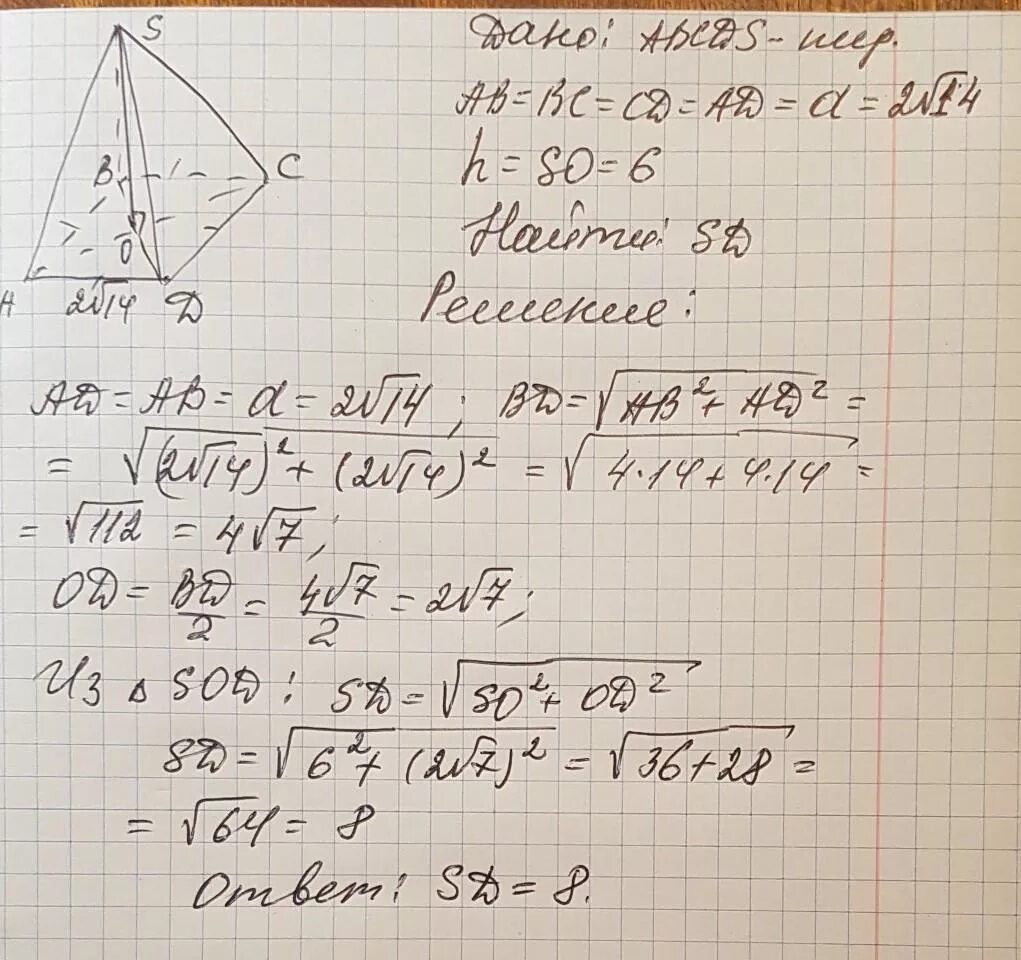 S
Дано: ABCDS - пир.
AB = BC = CD = AD = a = 2√14
B
C
h = SO = 6
O
Найти: SD
A
2√14
D
Решение:
AD = AB = a = 2√14; BD = √(AB² + AD²) =
= √((2√14)² + (2√14)²) = √(4·14 + 4·14) =
= √112 = 4√7;
OD = BD/2 = 4√7/2 = 2√7;
Из △ SOD: SD = √(SO² + OD²)
SD = √(6² + (2√7)²) = √(36 + 28) =
= √64 = 8
Ответ: SD = 8.